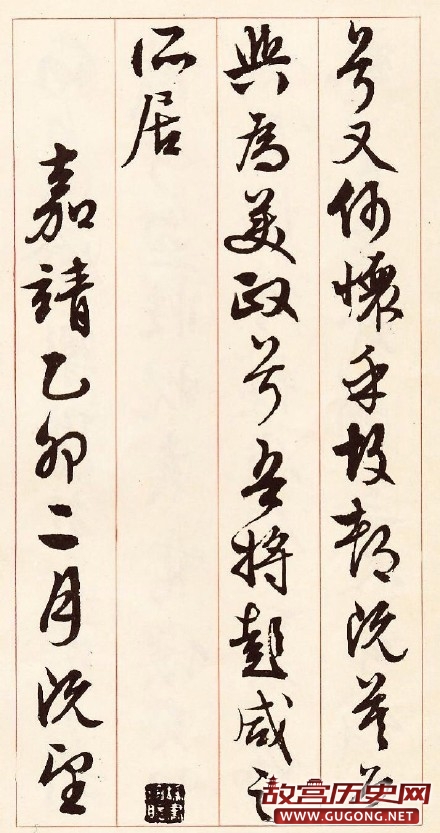 兮又何懷乎故都既莫足
與為美政兮吾將彭咸之
所居
嘉靖乙卯二月既望
故宫历史网
WWW.GUGONG.NET